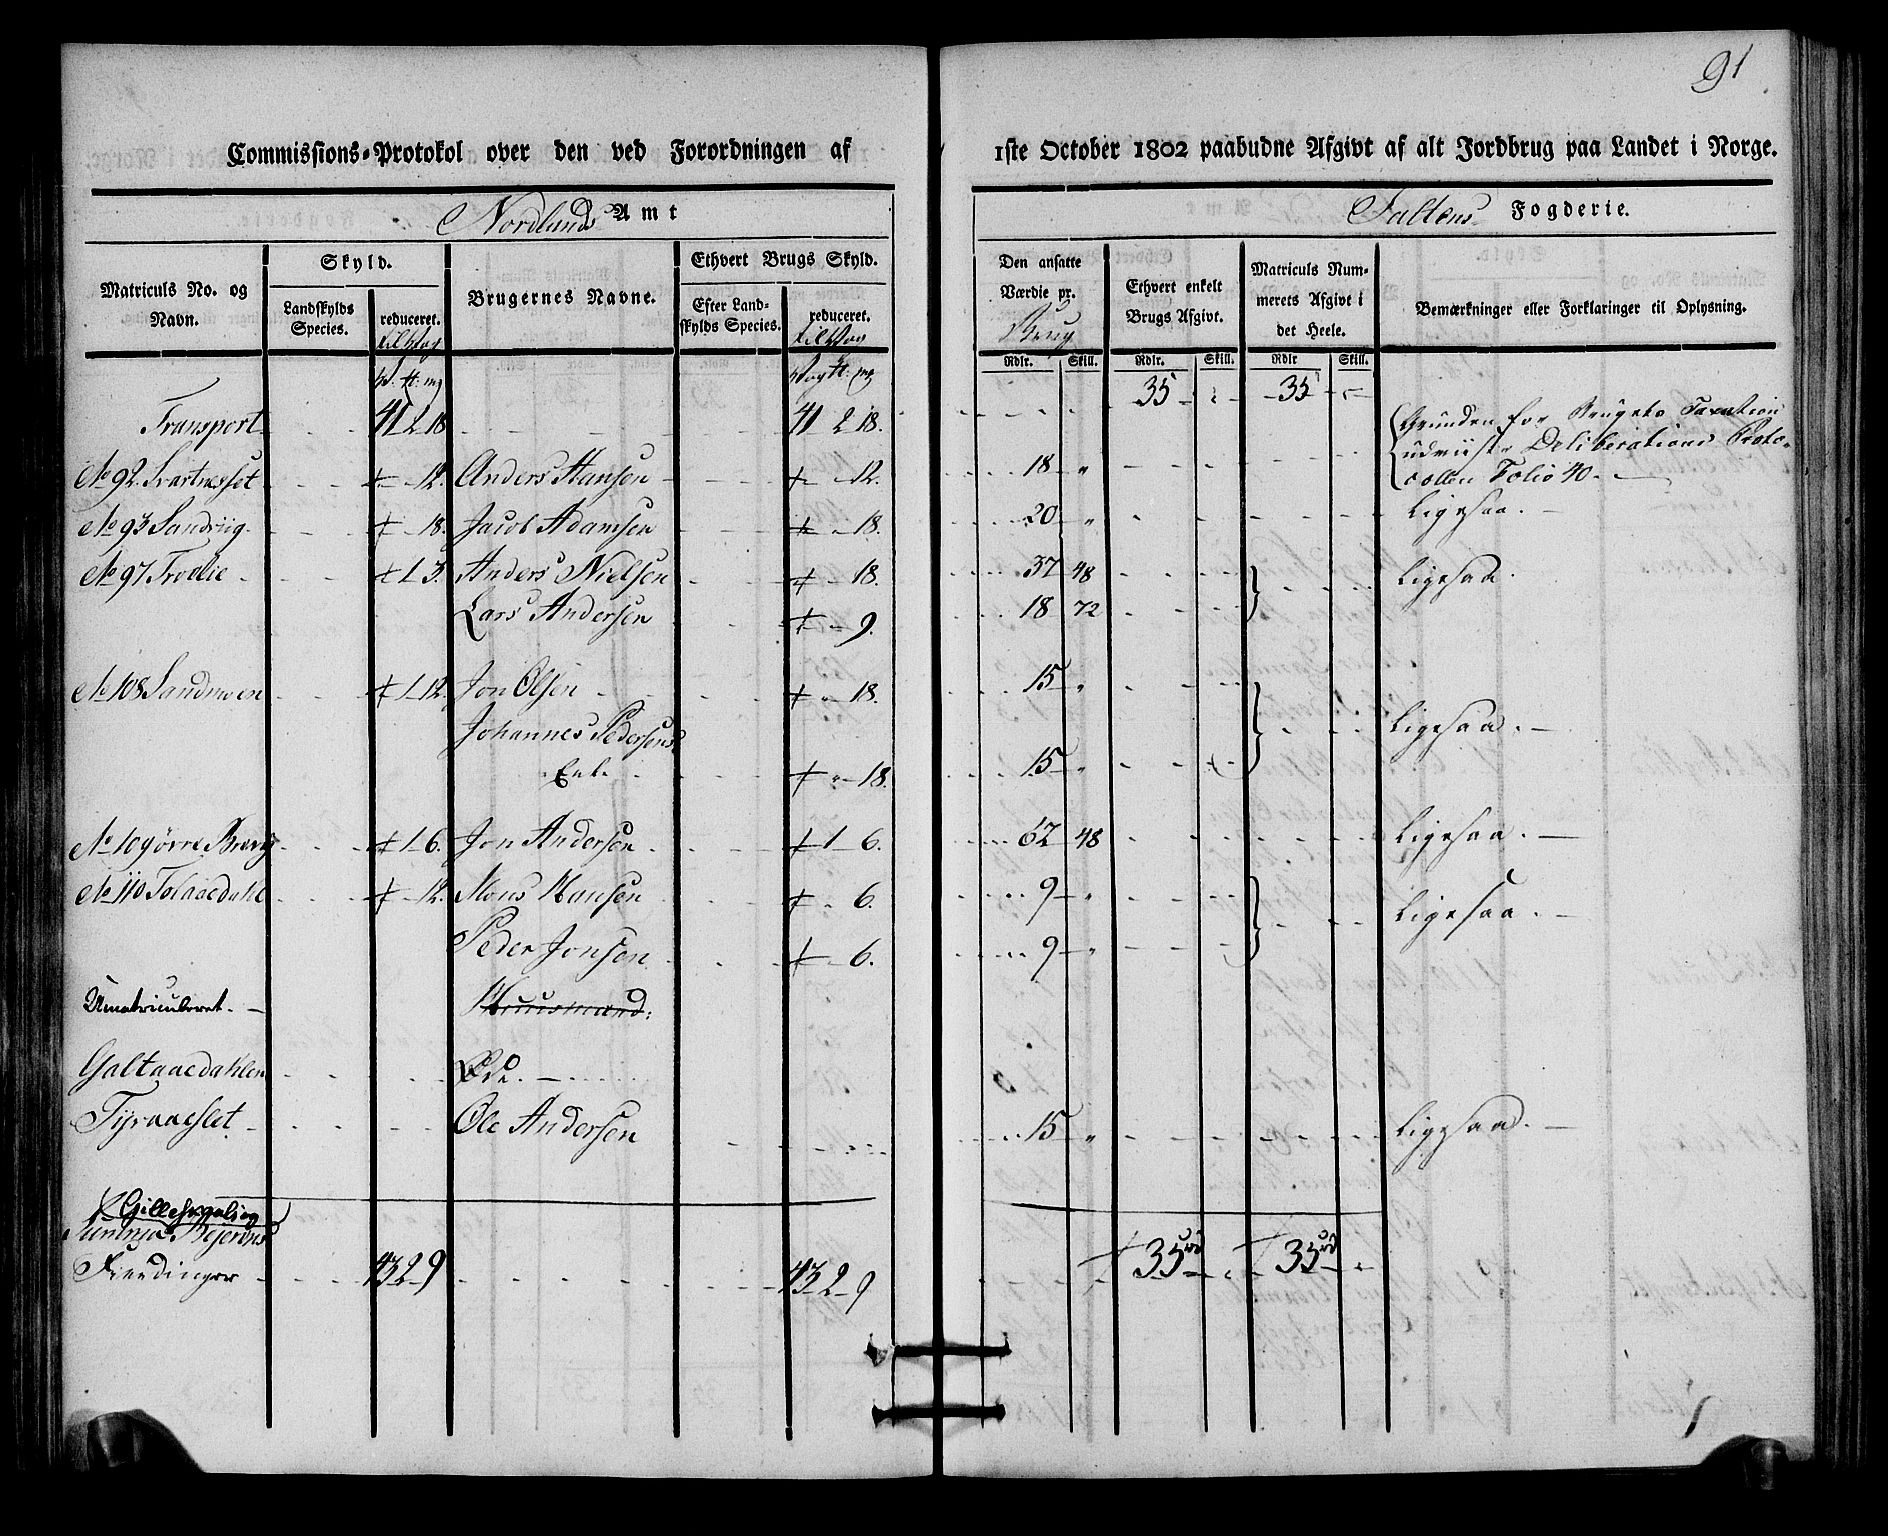 91
Commissions-Protokol over den ved Forordningen af 1ste October 1802 paabudne Afgivt af alt Jordbrug paa Landet i Norge.
Nordlands Amt
Saltens Fogderie.
Matriculs No. og Navn.
Skyld.
Landskylds Species.
reduceret. til Vog
Brugernes Navne.
Ethvert Brugs Skyld.
Efter Landskylds Species.
reduceret. til Vog
Den ansatte Værdie pr. Brug
Ethvert enkelt Brugs Afgivt.
Matriculs Nummerets Afgivt i det Heele.
Bemærkninger eller Forklaringer til Oplysning.
Rdlr. Skill. Rdlr. Skill. Rdlr Skill.
Transport 41 2 18 41 2 18. 35 35
Grunden for Brugets Taxation
udviiser Deliberations Proto-
collen Folio 40.
No 92. 12. Anders Hansen 12. 18 "
No 93 Sandviig 18. Jacob Adamsen 18. 20 " Ligesaa.
No 97 Trolie 1 3. Anders Nielsen 18. 37 48 Ligesaa.
Lars Andersen 9. 18 72
No 108 Sandmoen 1 12. Jon Olsen 18. 15 "
Johannes Pedersens Ligesaa.
Enke 18. 15 "
No 109 1 6. Jon Andersen 1 6. 62 48 Ligesaa.
No 110 Tolaaedahl 12. Mons Hansen 6. 9 " Ligesaa.
Peder Jonsen 6. 9 "
Umatriculeret. Huusmænd:
Galtaaedahlen Øde.
Tyraaeslet Ole Andersen 15 " Ligesaa.
Gilleskaal og
Bejerens
Fierdinger 43 2 9 43 2 9 35 35